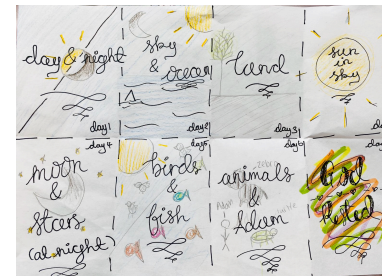 day & night
day 1
sky
& ocean
day 2
land
day 3
sun
in
sky
day
day 4
moon
&
stars
(at night)
day 5
birds
&
fish
day 6
animals
&
Adam
Adam
God
Rested